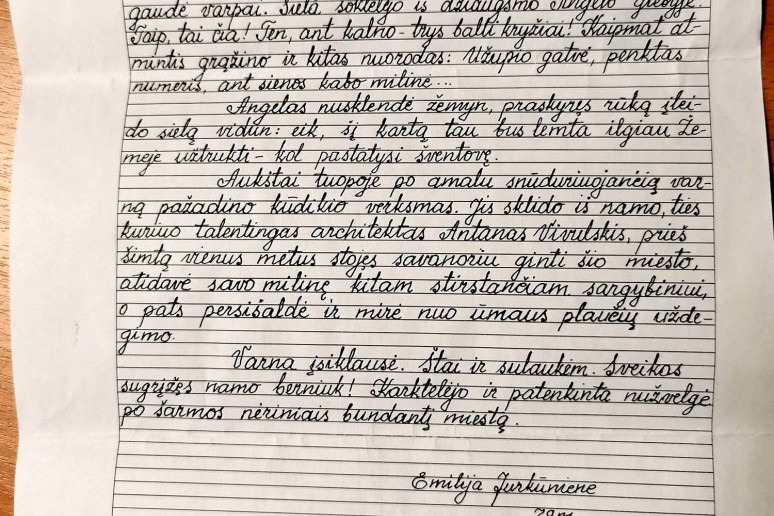 gaudė varpai. Siela šoktelėjo iš džiaugsmo Angelo glėbyje.
Taip, tai čia! Ten, ant kalno - trys balti kryžiai! Kaipmat at-
mintis grąžino ir kitas nuorodas: Užupio gatvė, penktas
numeris, ant sienos kabo milinė...
Angelas nusklendė žemyn, praskyręs rūką įlei-
do sielą vidun: eik, šį kartą tau bus lemta ilgiau Že-
mėje užtrukti - kol pastatysi šventovę.
Aukštai tuopoje po amalu snūduriuojančią var-
ną pažadino kūdikio verksmas. Jis sklido iš namo, ties
kuriuo talentingas architektas Antanas Vivulskis, prieš
šimtą vienus metus stojęs savanoriu ginti šio miesto,
atidavė savo milinę kitam stirstančiam sargybiniui,
o pats persišaldė ir mirė nuo ūmaus plaučių užde-
gimo.
Varna įsiklausė. Štai ir sulaukėm. Sveikas
sugrįžęs namo berniuk! Karktelėjo ir patenkinta nužvelgė
po šarmos nėriniais bundantį miestą.
Emilija Jurkūnienė